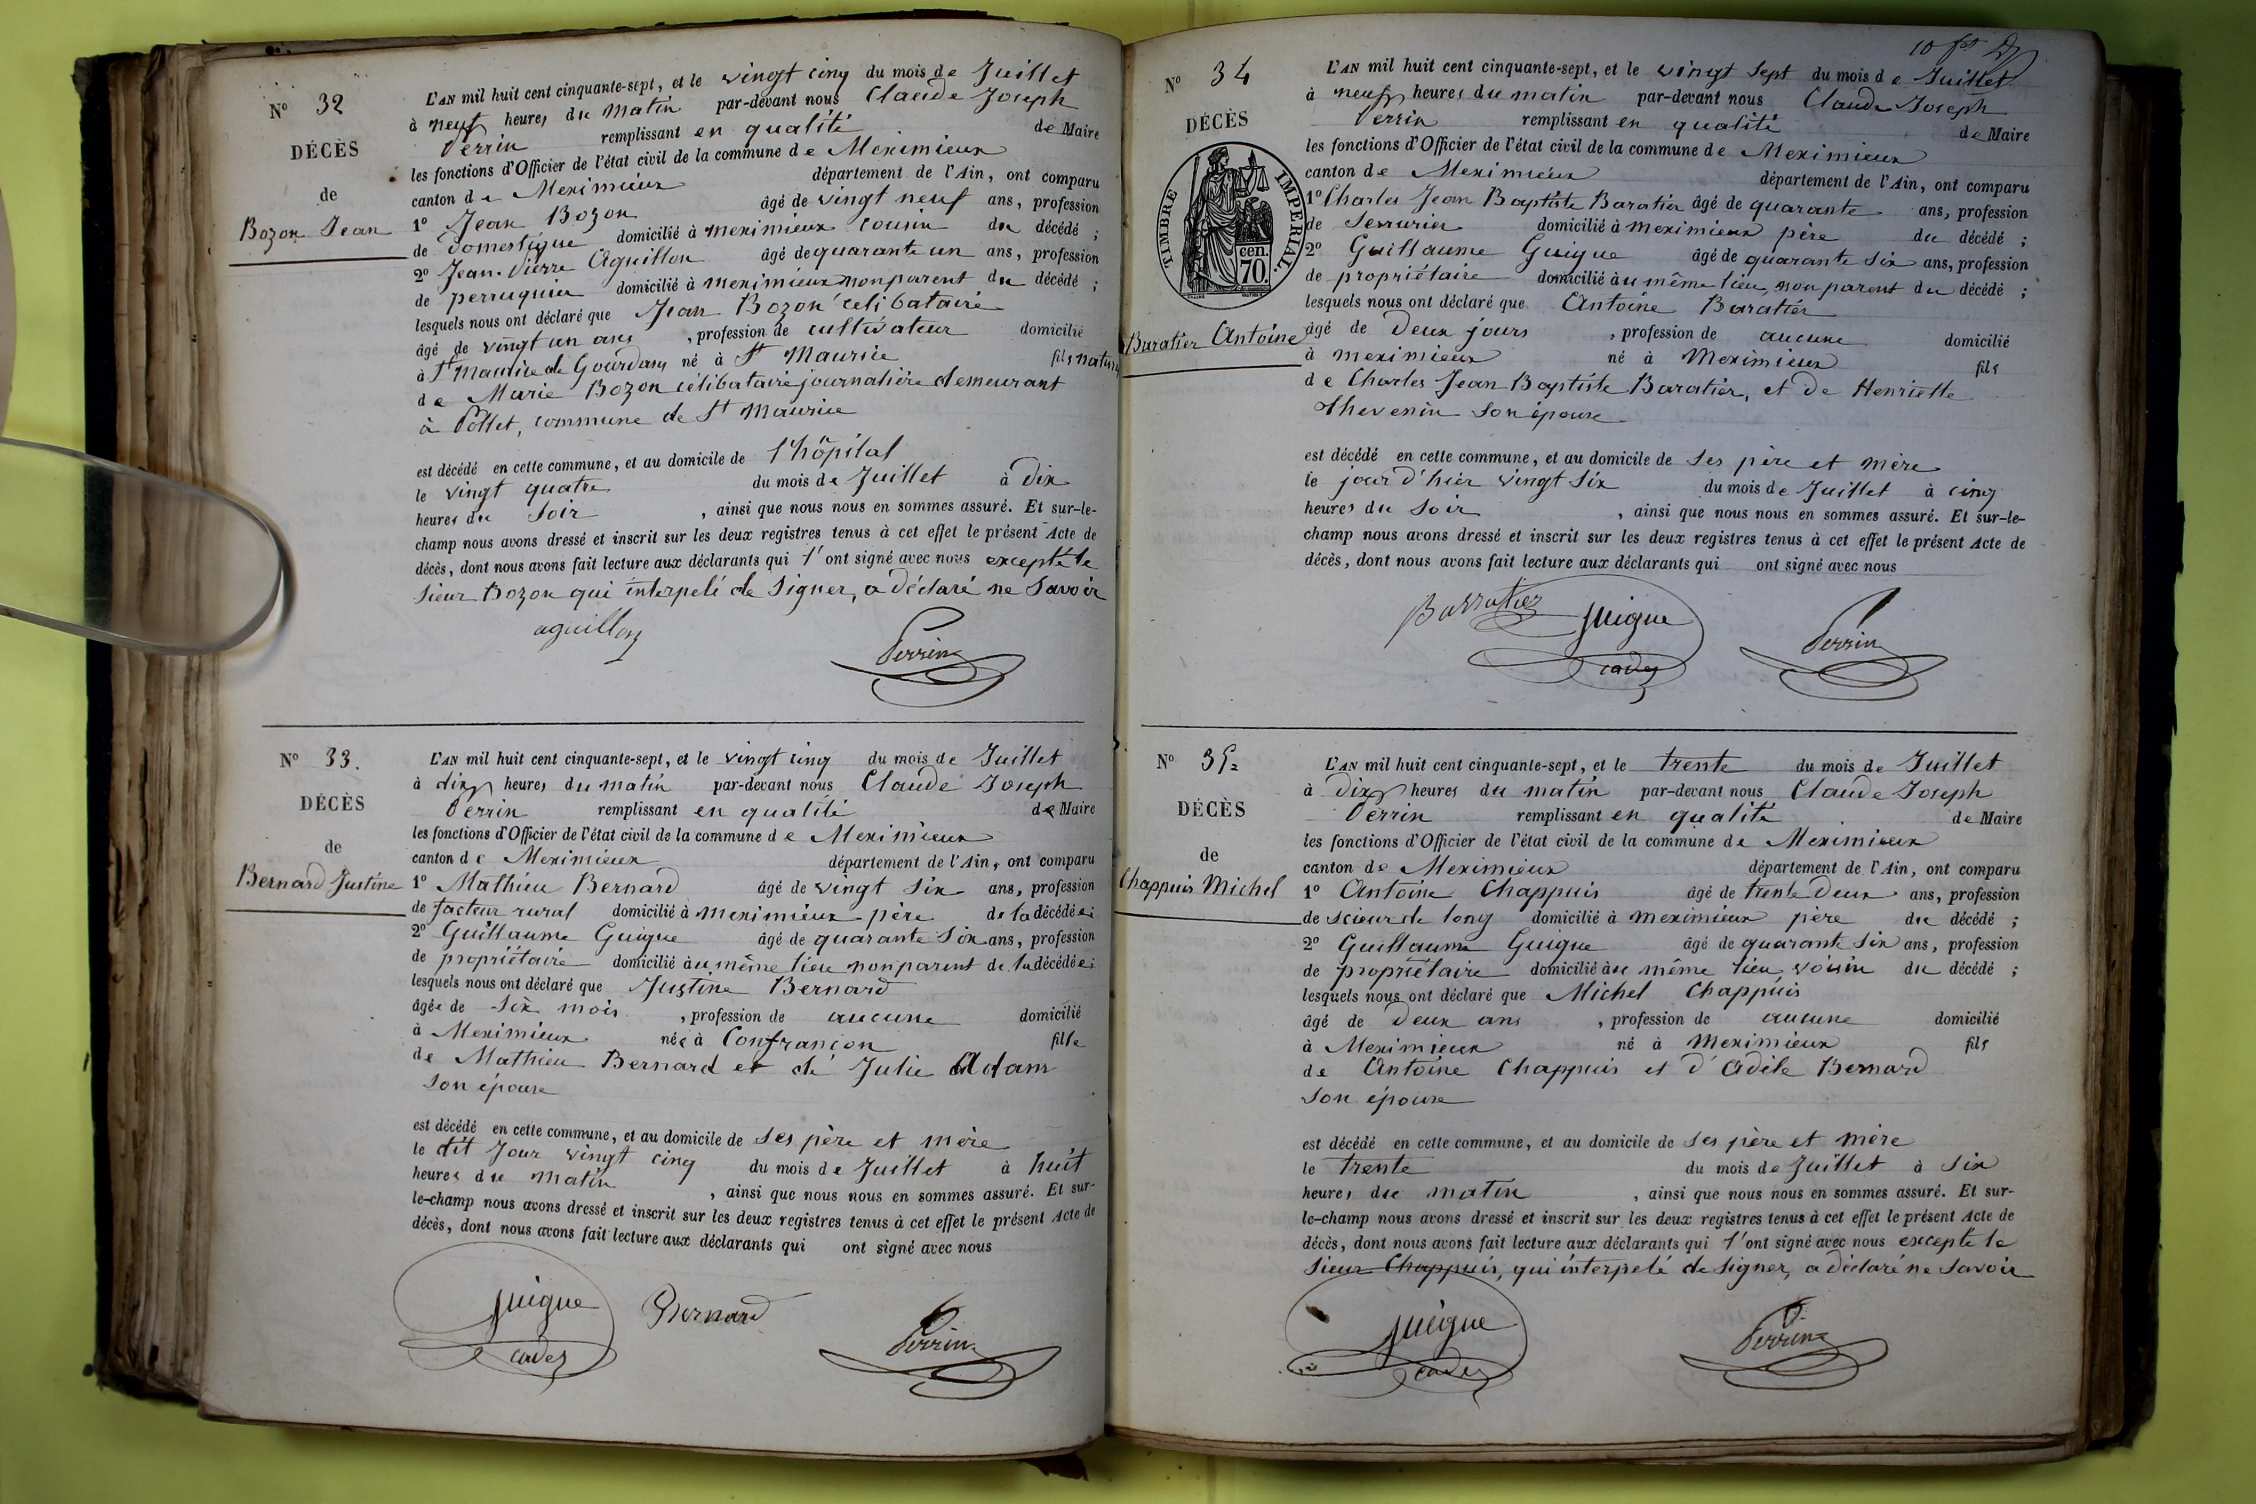 N° 32
DÉCÈS
de
Bozon Jean
L'AN mil huit cent cinquante-sept, et le vingt cinq du mois de Juillet
à neuf heures du matin par-devant nous Claude Joseph
Perrin remplissant en qualité de Maire
les fonctions d'Officier de l'état civil de la commune de Meximieux
canton de Meximieux département de l'Ain, ont comparu
1° Jean Bozon âgé de vingt neuf ans, profession
de domestique domicilié à meximieux cousin du décédé ;
2° Jean-Pierre Aguillon âgé de quarante un ans, profession
de perruquier domicilié à meximieux non parent du décédé ;
lesquels nous ont déclaré que Jean Bozon célibataire
âgé de vingt un ans, profession de cultivateur domicilié
à St Maurice de Gourdans né à St Maurice fils naturel
de Marie Bozon célibataire journalière demeurant
à Pollet, commune de St Maurice
est décédé en cette commune, et au domicile de l'hôpital
le vingt quatre du mois de Juillet à dix
heures du soir, ainsi que nous nous en sommes assuré. Et sur-le-
champ nous avons dressé et inscrit sur les deux registres tenus à cet effet le présent Acte de
décès, dont nous avons fait lecture aux déclarants qui l'ont signé avec nous excepté le
sieur Bozon qui interpelé de signer, a déclaré ne savoir
aguillon Perrin
N° 33.
DÉCÈS
de
Bernard Justine
L'AN mil huit cent cinquante-sept, et le vingt cinq du mois de Juillet
à dix heures du matin par-devant nous Claude Joseph
Perrin remplissant en qualité de Maire
les fonctions d'Officier de l'état civil de la commune de Meximieux
canton de Meximieux département de l'Ain, ont comparu
1° Mathieu Bernard âgé de vingt six ans, profession
de facteur rural domicilié à meximieux père de la décédée ;
2° Guillaume Guigue âgé de quarante six ans, profession
de propriétaire domicilié au même lieu non parent de la décédée ;
lesquels nous ont déclaré que Justine Bernard
âgée de six mois, profession de aucune domicilié
à Meximieux née à Confrançon fille
de Mathieu Bernard et de Julie Adam
son épouse
est décédé en cette commune, et au domicile de ses père et mère
le dit jour vingt cinq du mois de Juillet à huit
heures du matin, ainsi que nous nous en sommes assuré. Et sur-
le-champ nous avons dressé et inscrit sur les deux registres tenus à cet effet le présent Acte de
décès, dont nous avons fait lecture aux déclarants qui ont signé avec nous
guigue Bernard Perrin
cadez
N° 34
DÉCÈS
TIMBRE IMPERIAL.
cen.
70.
Baratier Antoine
L'AN mil huit cent cinquante-sept, et le vingt sept du mois de Juillet
à neuf heures du matin par-devant nous Claude Joseph
Perrin remplissant en qualité de Maire
les fonctions d'Officier de l'état civil de la commune de Meximieux
canton de Meximieux département de l'Ain, ont comparu
1° Charles Jean Baptiste Baratier âgé de quarante ans, profession
de serrurier domicilié à meximieux père du décédé ;
2° Guillaume Guigue âgé de quarante six ans, profession
de propriétaire domicilié au même lieu, non parent du décédé ;
lesquels nous ont déclaré que Antoine Baratier
âgé de deux jours, profession de aucune domicilié
à meximieux né à Meximieux fils
de Charles Jean Baptiste Baratier, et de Henriette
Thevenin son épouse
est décédé en cette commune, et au domicile de ses père et mère
le jour d'hier vingt six du mois de Juillet à cinq
heures du soir, ainsi que nous nous en sommes assuré. Et sur-le-
champ nous avons dressé et inscrit sur les deux registres tenus à cet effet le présent Acte de
décès, dont nous avons fait lecture aux déclarants qui ont signé avec nous
Barratier guigue Perrin
cadez
N° 35
DÉCÈS
de
Chappuis Michel
L'AN mil huit cent cinquante-sept, et le trente du mois de Juillet
à dix heures du matin par-devant nous Claude Joseph
Perrin remplissant en qualité de Maire
les fonctions d'Officier de l'état civil de la commune de Meximieux
canton de Meximieux département de l'Ain, ont comparu
1° Antoine Chappuis âgé de trente deux ans, profession
de scieur de long domicilié à meximieux père du décédé ;
2° Guillaume Guigue âgé de quarante six ans, profession
de propriétaire domicilié au même lieu, voisin du décédé ;
lesquels nous ont déclaré que Michel Chappuis
âgé de deux ans, profession de aucune domicilié
à Meximieux né à meximieux fils
de Antoine Chappuis et d'Adèle Bernard
son épouse
est décédé en cette commune, et au domicile de ses père et mère
le trente du mois de Juillet à six
heures du matin, ainsi que nous nous en sommes assuré. Et sur-
le-champ nous avons dressé et inscrit sur les deux registres tenus à cet effet le présent Acte de
décès, dont nous avons fait lecture aux déclarants qui l'ont signé avec nous excepté le
sieur Chappuis, qui interpelé de signer, a déclaré ne savoir
guigue Perrin
cadez